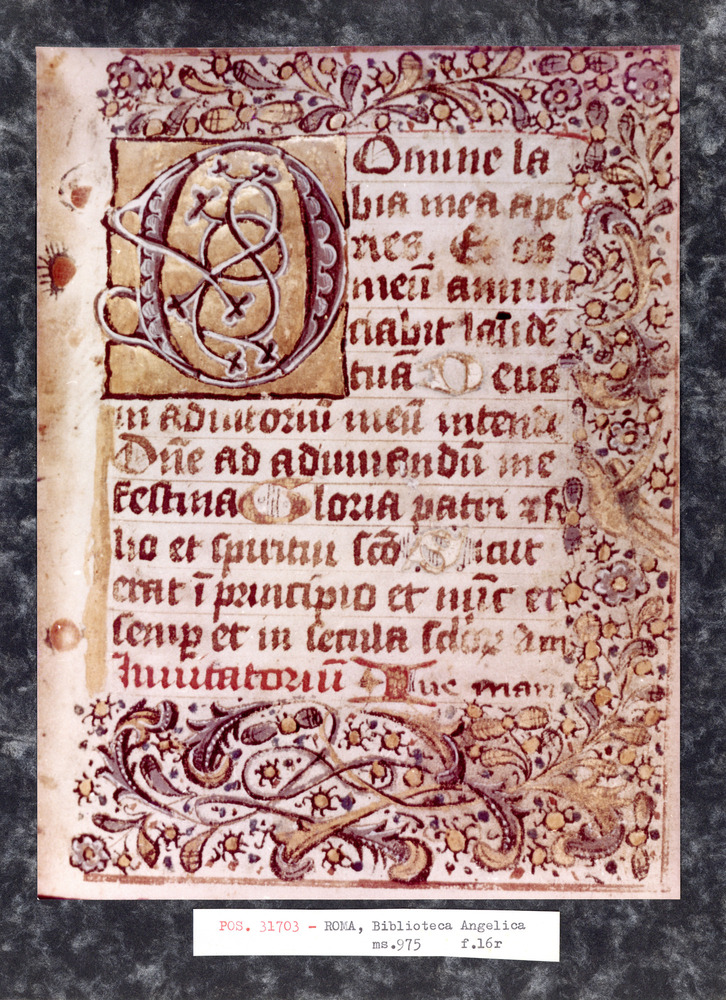 Domine la
bia mea ape
ries. Et os
meū annun
ciabit laudē
tuā Deus
in adiutoriū meū intende
Dn̄e ad adiuuandū me
festina Gloria patri et fi
lio et spiritui sc̄o Sicut
erat ī principio et nūc et
semꝑ et in secula sclōꝝ am̄
Inuitatoriū Aue mari
POS. 31703 - ROMA, Biblioteca Angelica
ms.975 f.16r